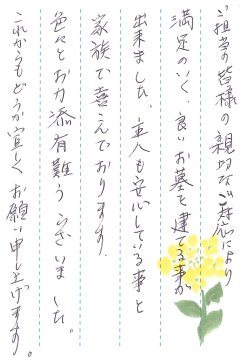 ご担当の皆様の親切なご対応により
満足のいく、良いお墓を建てる事が
出来ました。主人も安心している事と
家族で喜んでおります。
色々とお力添有難うございました。
これからもどうか宜しくお願い申し上げます。